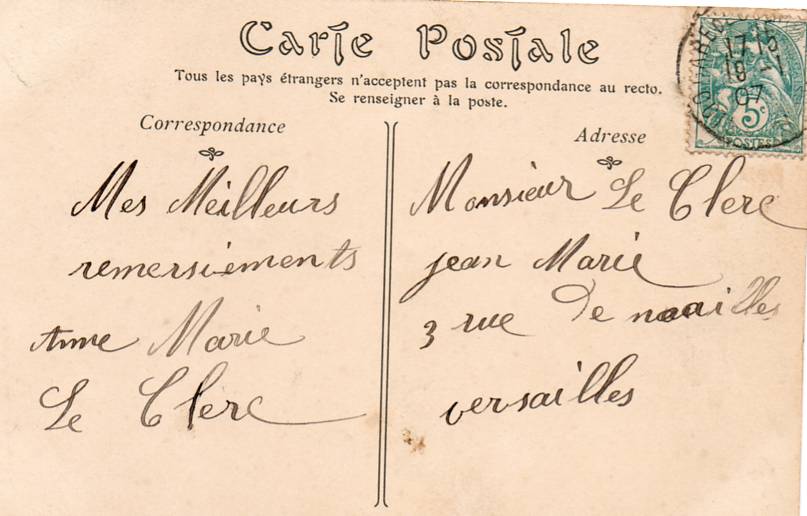 Carte Postale
Tous les pays étrangers n'acceptent pas la correspondance au recto.
Se renseigner à la poste.
Correspondance
Mes Meilleurs
remersiements
Anne Marie
Le Clerc
Adresse
Monsieur Le Clerc
jean Marie
3 rue De noailles
versailles
17
18
07
5c
POSTES